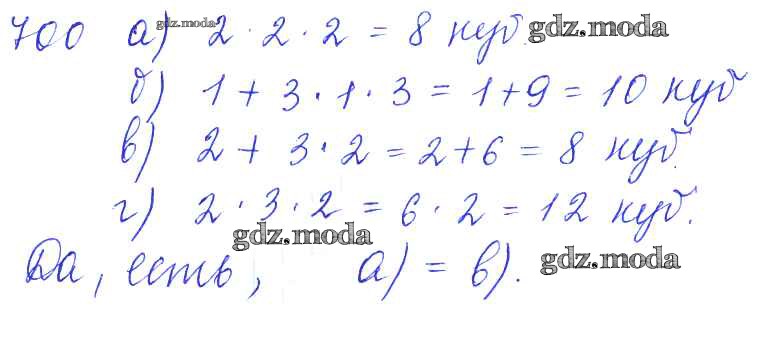 700 а) 2 · 2 · 2 = 8 куб. gdz.moda gdz.moda
б) 1 + 3 · 1 · 3 = 1 + 9 = 10 куб
в) 2 + 3 · 2 = 2 + 6 = 8 куб.
г) 2 · 3 · 2 = 6 · 2 = 12 куб.
gdz.moda
Да, есть, а) = в). gdz.moda